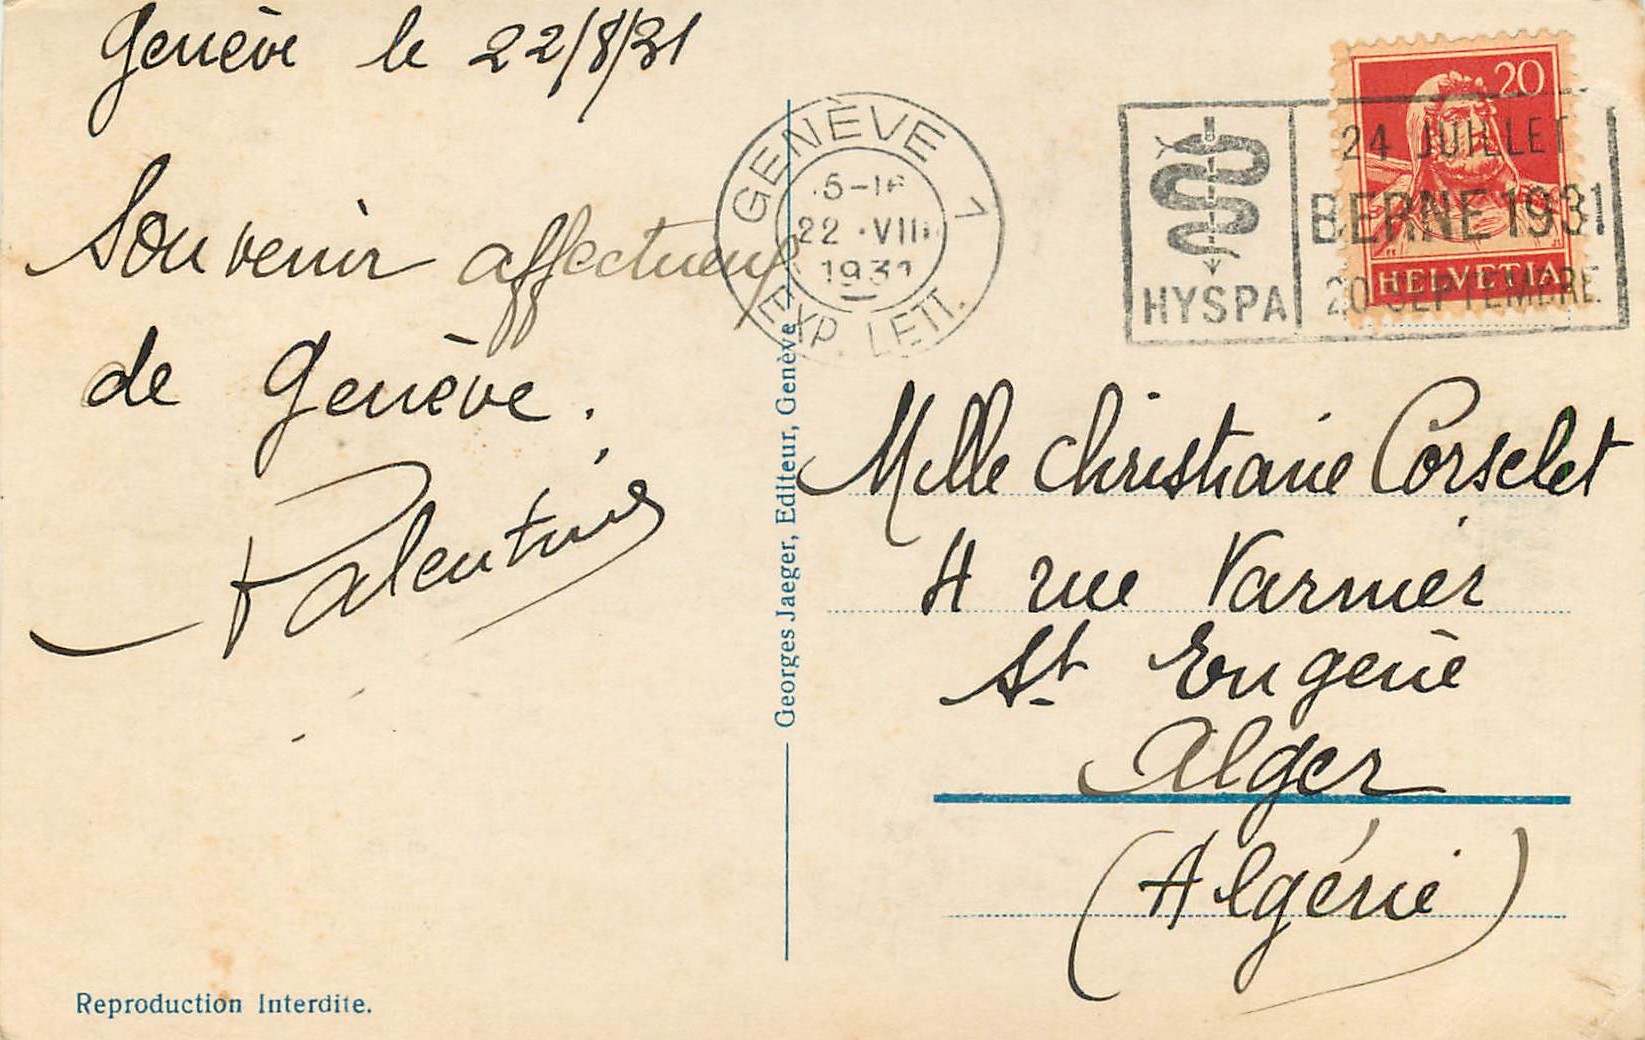 Genève le 22/8/31
Souvenir affectueux
de Genève.
GENÈVE 1
22 · VIII
1931
EXP. LETT.
HYSPA
24 JUILLET
BERNE 1931
20 SEPTEMBRE
20
HELVETIA
Georges Jaeger, Editeur, Genève
Mlle Christiane Corselet
4 rue Varnier
St Eugène
Alger
(Algérie)
Reproduction Interdite.